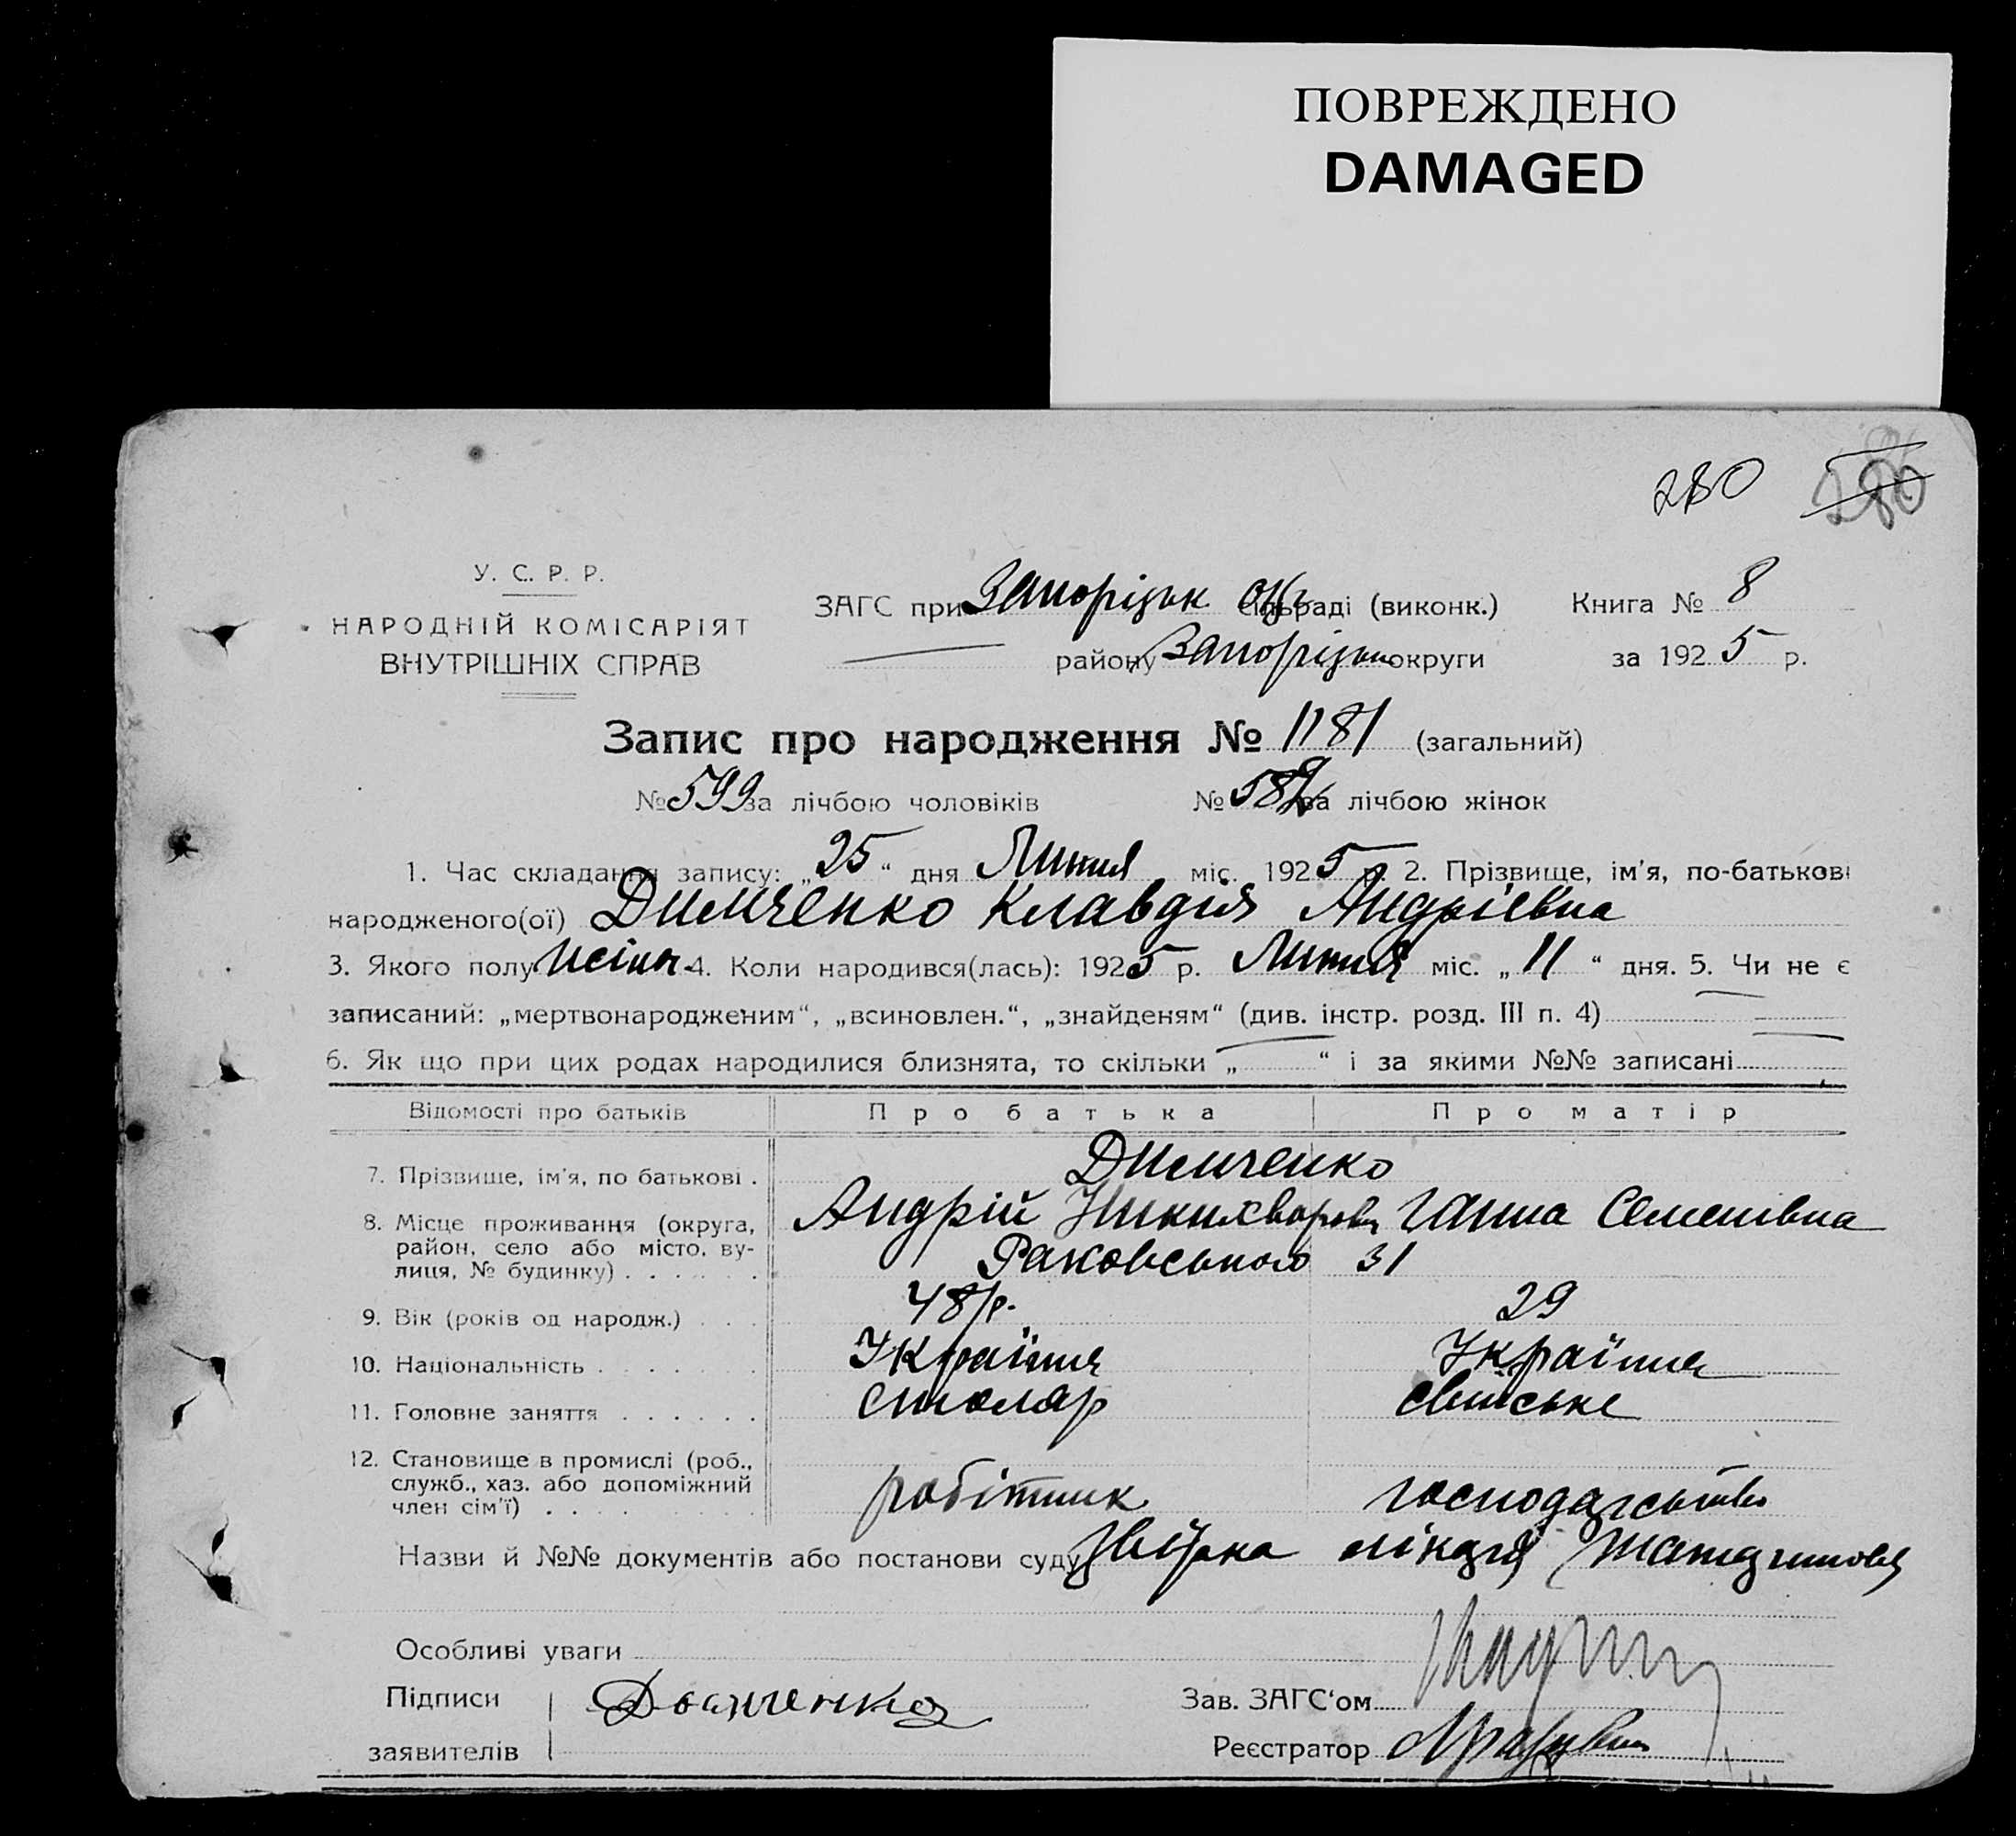 ПОВРЕЖДЕНО
DAMAGED
280 280
У. С. Р. Р.
НАРОДНІЙ КОМІСАРІЯТ
ВНУТРІШНІХ СПРАВ
ЗАГС при Запорізьк окр сільраді (виконк.) Книга № 8
району Запорізьк округи за 1925 р.
Запис про народження № 1181 (загальний)
№ 599 за лічбою чоловіків № 582 за лічбою жінок
1. Час складання запису: „25“ дня Липня міс. 1925 р. 2. Прізвище, ім'я, по-батькові
народженого(ої) Димченко Клавдія Андріївна
3. Якого полу жіноч 4. Коли народився(лась): 1925 р. Липня міс. „11“ дня. 5. Чи не є
записаний: „мертвонародженим“, „всиновлен.“, „знайденям“ (див. інстр. розд. III п. 4)
6. Як що при цих родах народилися близнята, то скільки „ “ і за якими №№ записані
Відомості про батьків Про батька Про матір
7. Прізвище, ім'я, по батькові . Димченко
Андрій Никихворови Ганна Семенівна
8. Місце проживання (округа, район, село або місто, вулиця, № будинку) . . . . . . Раковського 31
9. Вік (років од народж.) . . . 48 р. 29
10. Національність . . . . . . Україня Україня
11. Головне заняття . . . . . . столяр свійське
12. Становище в промислі (роб., служб., хаз. або допоміжний член сім'ї) . . . . . . робітник господарство
Назви й №№ документів або постанови суду лікаря
Особливі уваги
Підписи Дымченко Зав. ЗАГС'ом
заявителів Реєстратор